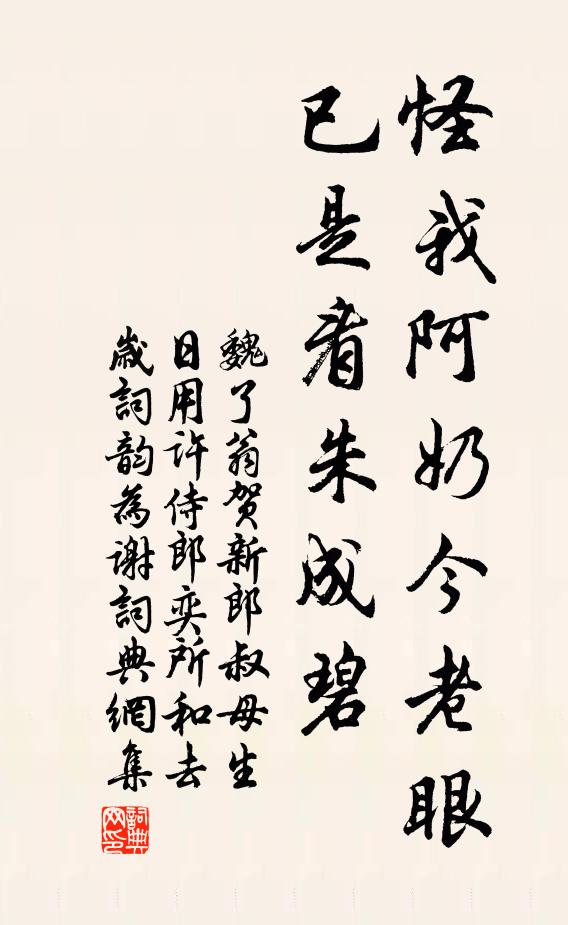 怪我阿奶今老眼
已是看朱成碧
魏了翁贺新郎叔母生
日用许侍郎奕所和去
歲詞韵為謝詞典網集
詞典
网印